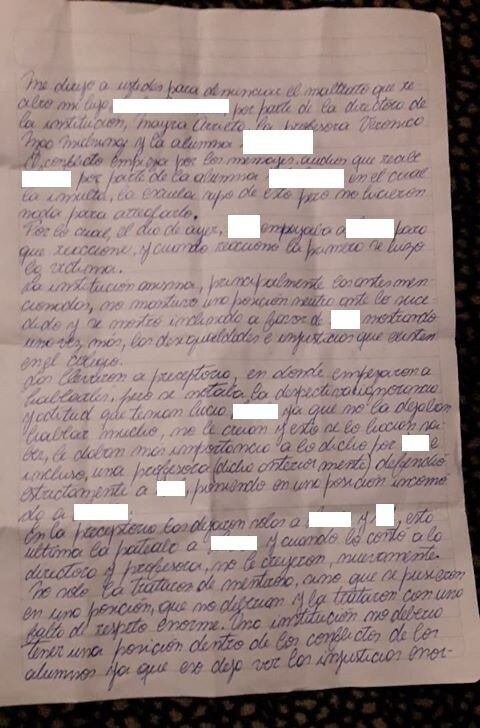 Me dirijo a ustedes para denunciar el maltrato que re-
cibio mi hija, por parte de la directora de
la institucion, Mayra Arrieta, la profesora Veronica
y la alumna
El conflicto empieza por los mensajes, audios que recibe
por parte de la alumna en el cual
la insulta, la escuela supo de esto pero no hicieron
nada para arreglarlo.
Por lo cual, el dia de ayer, empujaba a para
que reaccione, y cuando reaccionó la primera se hizo
la victima.
La institucion misma, principalmente los antes men-
cionados, no mantuvo una posición neutra ante lo suce-
dido y se mostró inclinado a favor de mostrando
una vez, mas, las desigualdades e injusticias que existen
en el colegio.
Las llevaron a preceptoria, en donde empezaron a
hablarles, pero se notaba, la despectiva ignorancia
y actitud que tenian hacia, ya que no la dejaban
hablar mucho, no le creian y esto se lo hacian sa-
ber, le daban mas importancia a lo dicho por e
incluso, una profesora (dicha anterior mente) defendió
estrictamente a, poniendo en una posicion incomo
da a
En la preceptoria las dejaron solas a y, esta
ultima la pateaba a y cuando le contó a la
directora y profesora, no le creyeron, nuevamente.
No solo la trataron de mentirosa, sino que se pusieron
en una posicion, que no deberian y la trataron con una
falta de respeto enorme. Una institución no deberia
tener una posición dentro de los conflictos de los
alumnos ya que eso deja ver las injusticias enor-